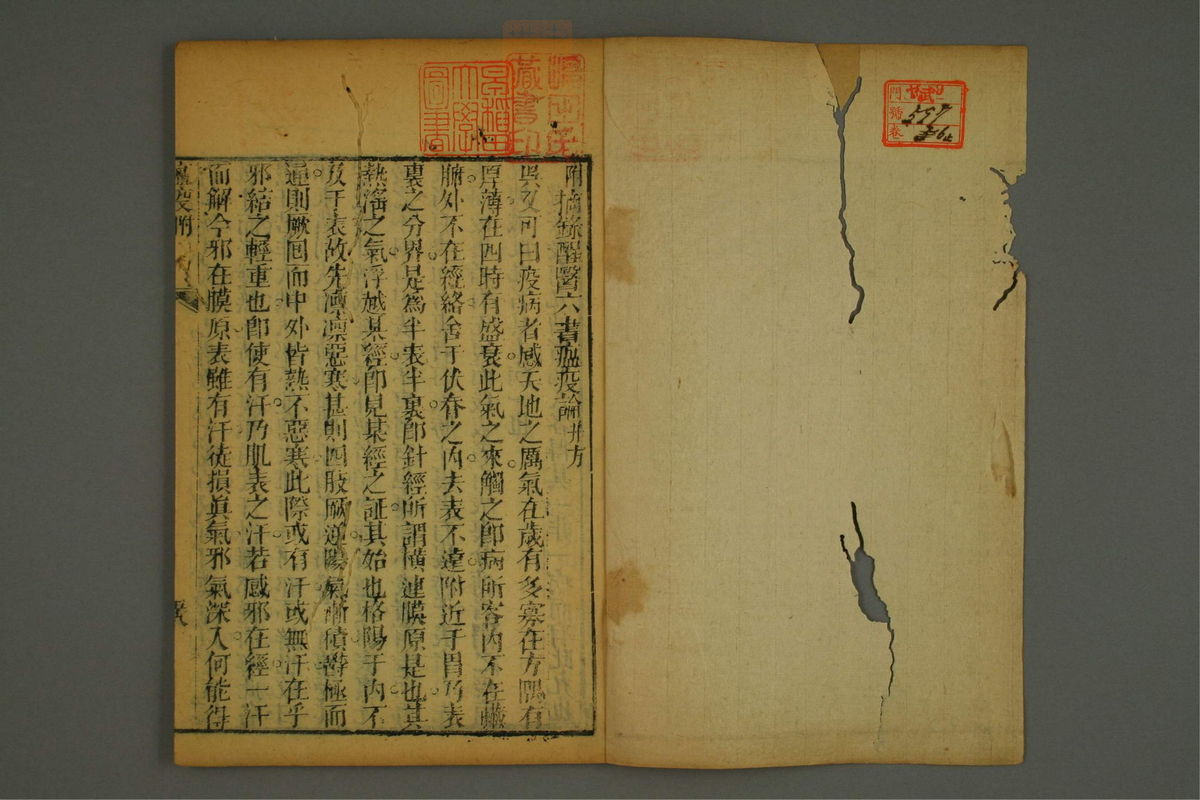 附摘錄醒醫六書瘟疫論并方
吳又可曰疫病者感天地之厲氣在歲有多寡在方隅有
厚薄在四時有盛衰此氣之來觸之卽病所客內不在臟
腑外不在經絡舍于伏脊之內去表不遠附近于胃乃表
裏之分界是爲半表半裏卽針經所謂橫連膜原是也其
熱淫之氣浮越某經卽見某經之証其始也格陽于内不
及于表故先凜凜惡寒甚則四肢厥逆陽氣漸積鬱極而
通則厥囘而中外皆熱不惡寒此際或有汗或無汗在乎
邪結之輕重也卽使有汗乃肌表之汗若感邪在經一汗
而解今邪在膜原表雖有汗徒損眞氣邪氣深入何能得
瘟疫附
早稻田大學圖書
藏書印
門
號
卷